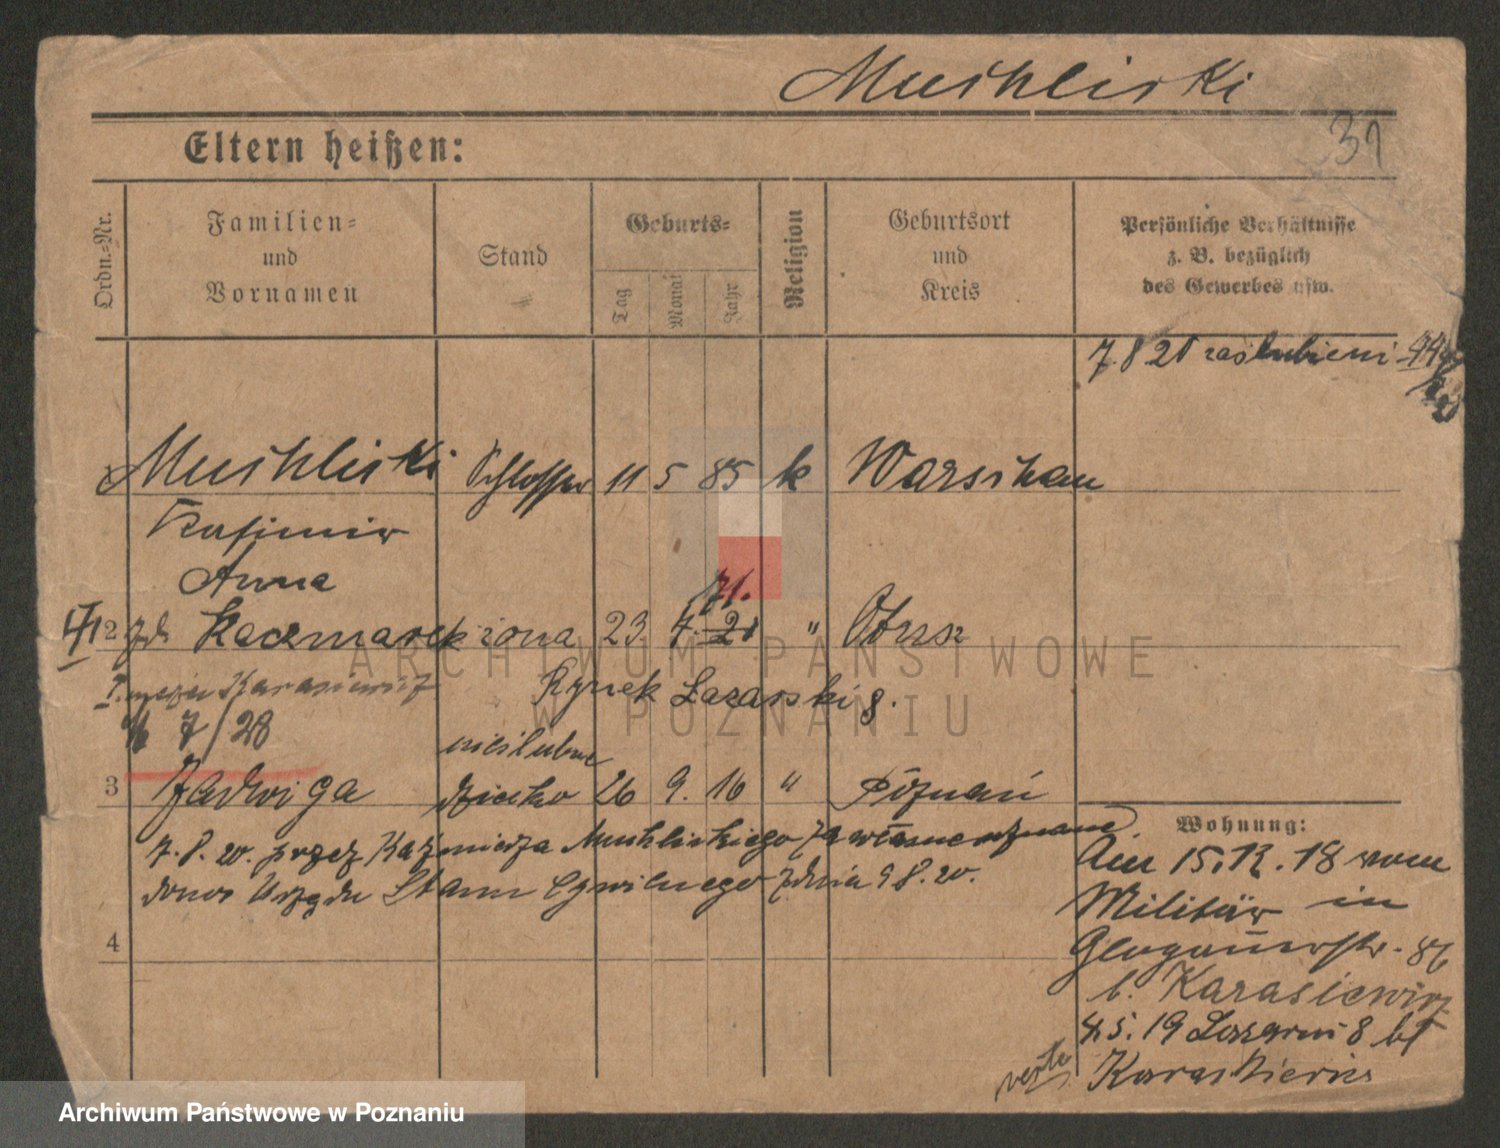 Mushliski
31
Eltern heißen:
Ordn.=Nr.
Familien=
und
Vornamen
Stand
Geburts=
Tag
Monat
Jahr
Religion
Geburtsort
und
Kreis
Persönliche Verhältnisse
z. B. bezüglich
des Gewerbes usw.
7.8 20 zaślubieni
Mushliski Schlosser 11 5 85 k Warschau
Kasimir
Anna
71.
2 zd. Kaczmarek żona 23 7. 21 "
Karasiewicz Rynek Lazarski 8.
7/28
nieślubne
3 Jadwiga dziecko 26 9. 16 " Poznań
7.8.20. przez Kaźmierza Mushliskiego za własne uznane.
donos Urzędu Stanu Cywilnego z dnia 9 8. 20.
4
Wohnung:
Am 15.12.18 vom
Militär in
Glogauerstr. 86
b. Karasiewicz
4.5.19 Lazarus 8 bei
verte
ARCHIWUM PAŃSTWOWE
W POZNANIU
Archiwum Państwowe w Poznaniu